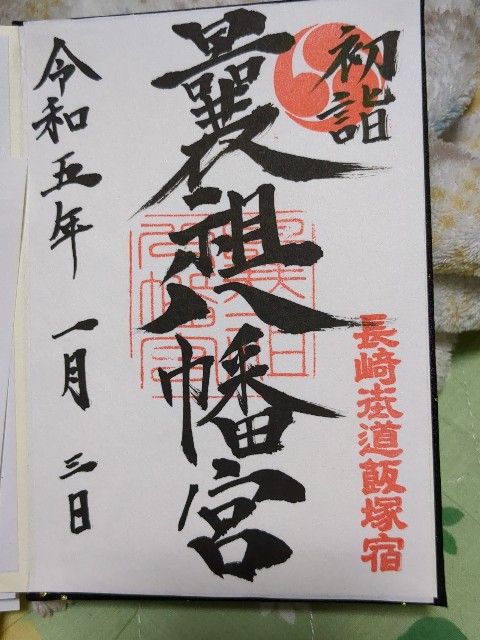 初詣
長崎街道飯塚宿
曩祖八幡宮
令和五年 一月 三日